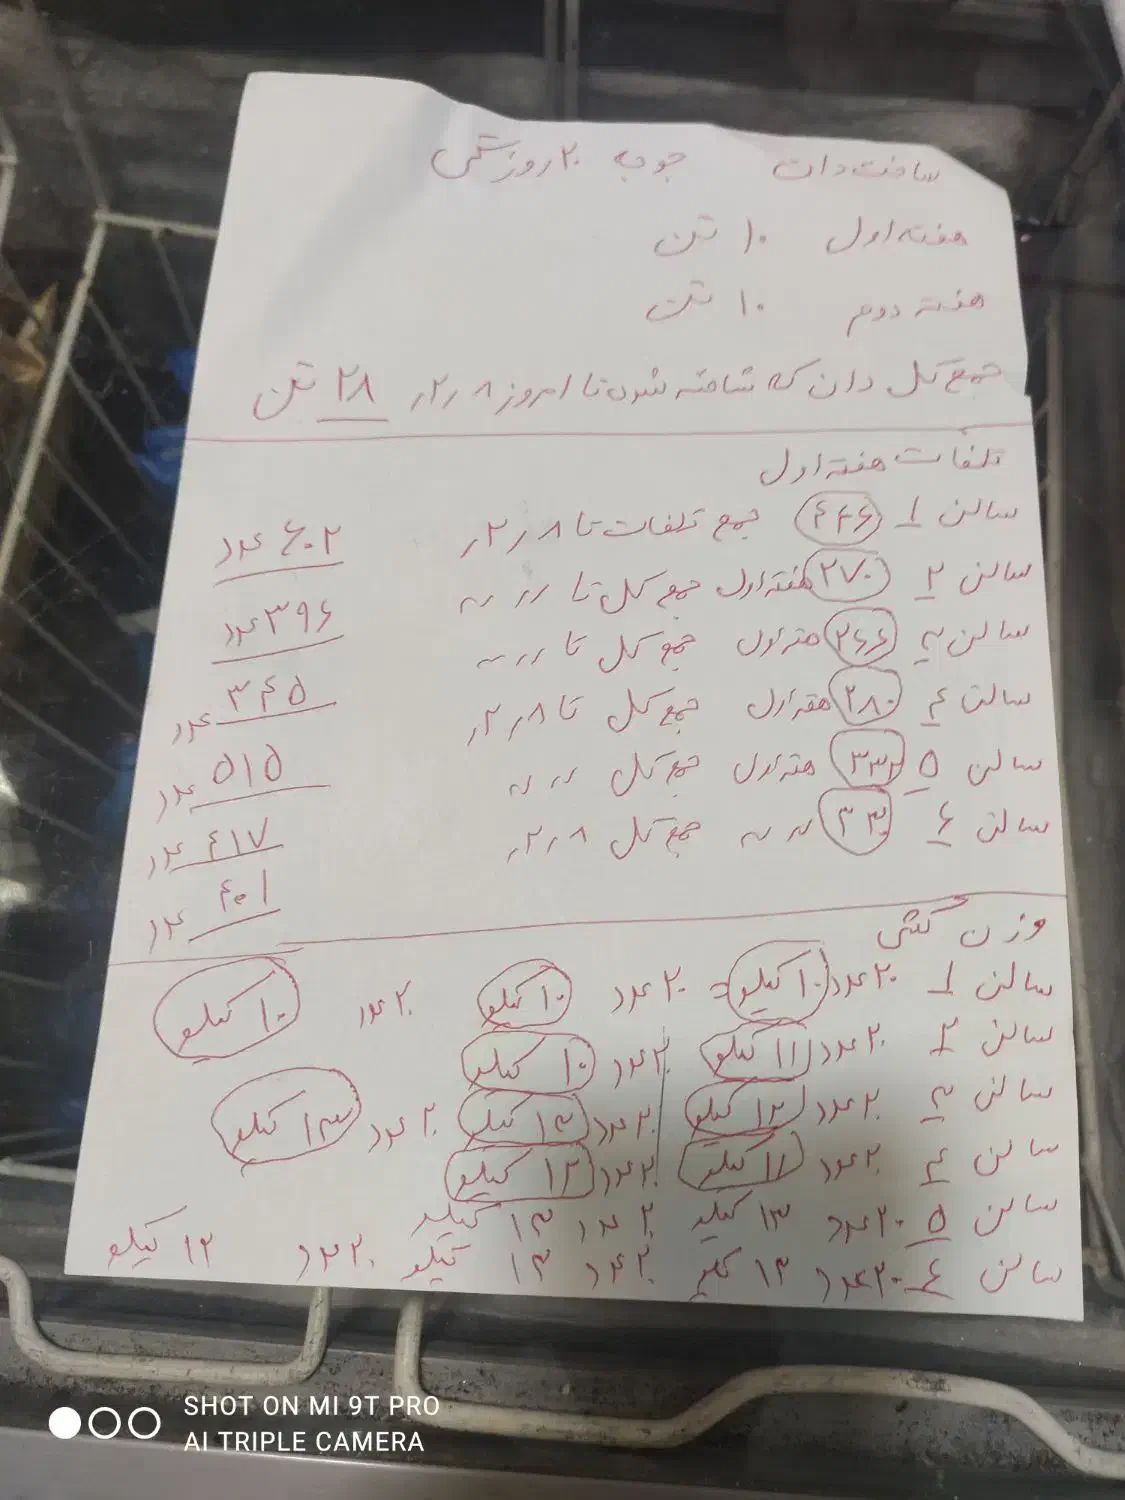 ساخت دان جوجه ۲۰ روزگی
هفته اول ۱۰ تن
هفته دوم ۱۰ تن
جمع کل دان که ساخته شده تا امروز ۲٫۸ ۲۸ تن
تلفات هفته اول
سالن ۱ ۴۴۶ جمع تلفات تا ۲٫۸ ۶۰۲ عدد
سالن ۲ ۲۷۰ هفته اول جمع کل تا 〃 〃 ۳۹۶ عدد
سالن ۳ ۲۶۶ هفته اول جمع کل تا 〃 〃 ۳۴۵ عدد
سالن ۴ ۲۸۰ هفته اول جمع کل تا ۲٫۸ ۵۱۵ عدد
سالن ۵ ۳۳۲ هفته اول جمع کل 〃 〃 ۴۱۷ عدد
سالن ۶ ۳۳۰ 〃 〃 جمع کل ۲٫۸ ۴۰۱ عدد
وزن کشی
سالن ۱ ۲۰ عدد ۱۰ کیلو = ۲۰ عدد ۱۰ کیلو ۲۰ عدد ۱۰ کیلو
سالن ۲ ۲۰ عدد ۱۱ کیلو ۲۰ عدد ۱۰ کیلو
سالن ۳ ۲۰ عدد ۱۲ کیلو ۲۰ عدد ۱۳ کیلو ۲۰ عدد ۱۳ کیلو
سالن ۴ ۲۰ عدد ۱۱ کیلو ۲۰ عدد ۱۲ کیلو
سالن ۵ ۲۰ عدد ۱۳ کیلو ۲۰ عدد ۱۳ کیلو
سالن ۶ ۲۰ عدد ۱۳ کیلو ۲۰ عدد ۱۳ کیلو ۲۰ عدد ۱۲ کیلو
SHOT ON MI 9T PRO
AI TRIPLE CAMERA